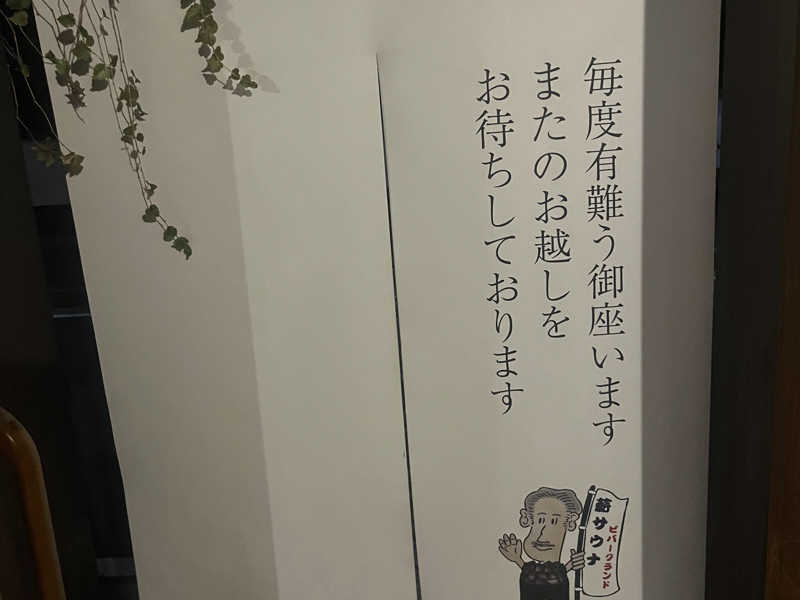 毎度有難う御座います
またのお越しを
お待ちしております
ビバークランド
筋サウナ